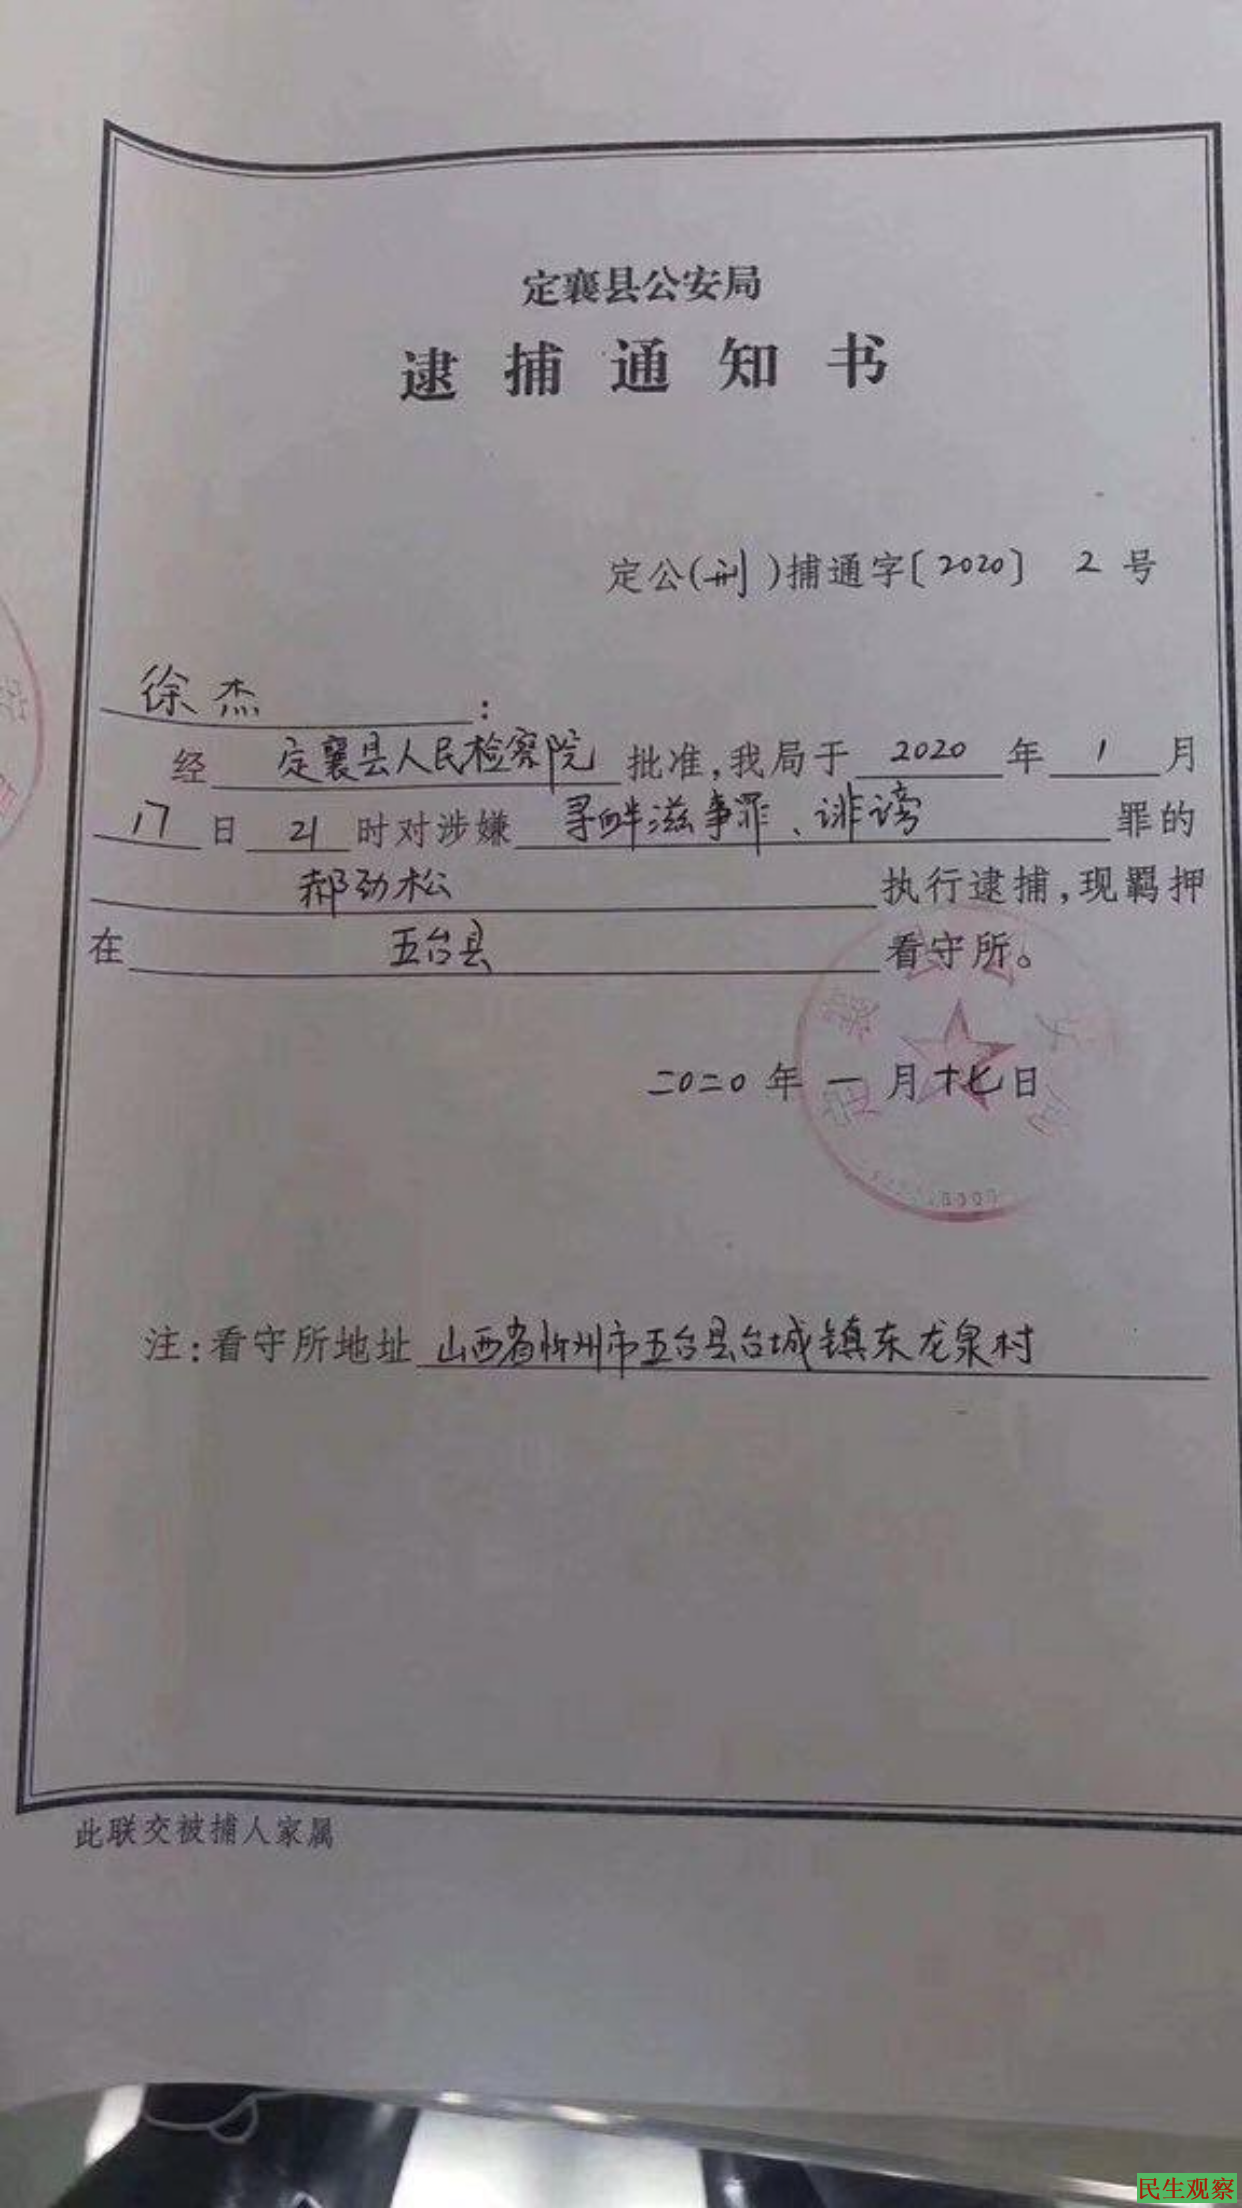 定襄县公安局
逮捕通知书
定公(刑)捕通字[2020] 2号
徐杰:
经 定襄县人民检察院 批准,我局于 2020 年 1 月
17 日 21 时对涉嫌 寻衅滋事罪、诽谤 罪的
郝劲松 执行逮捕,现羁押
在 五台县 看守所。
二0二0年一月十七日
注:看守所地址 山西省忻州市五台县台城镇东龙泉村
此联交被捕人家属
民生观察